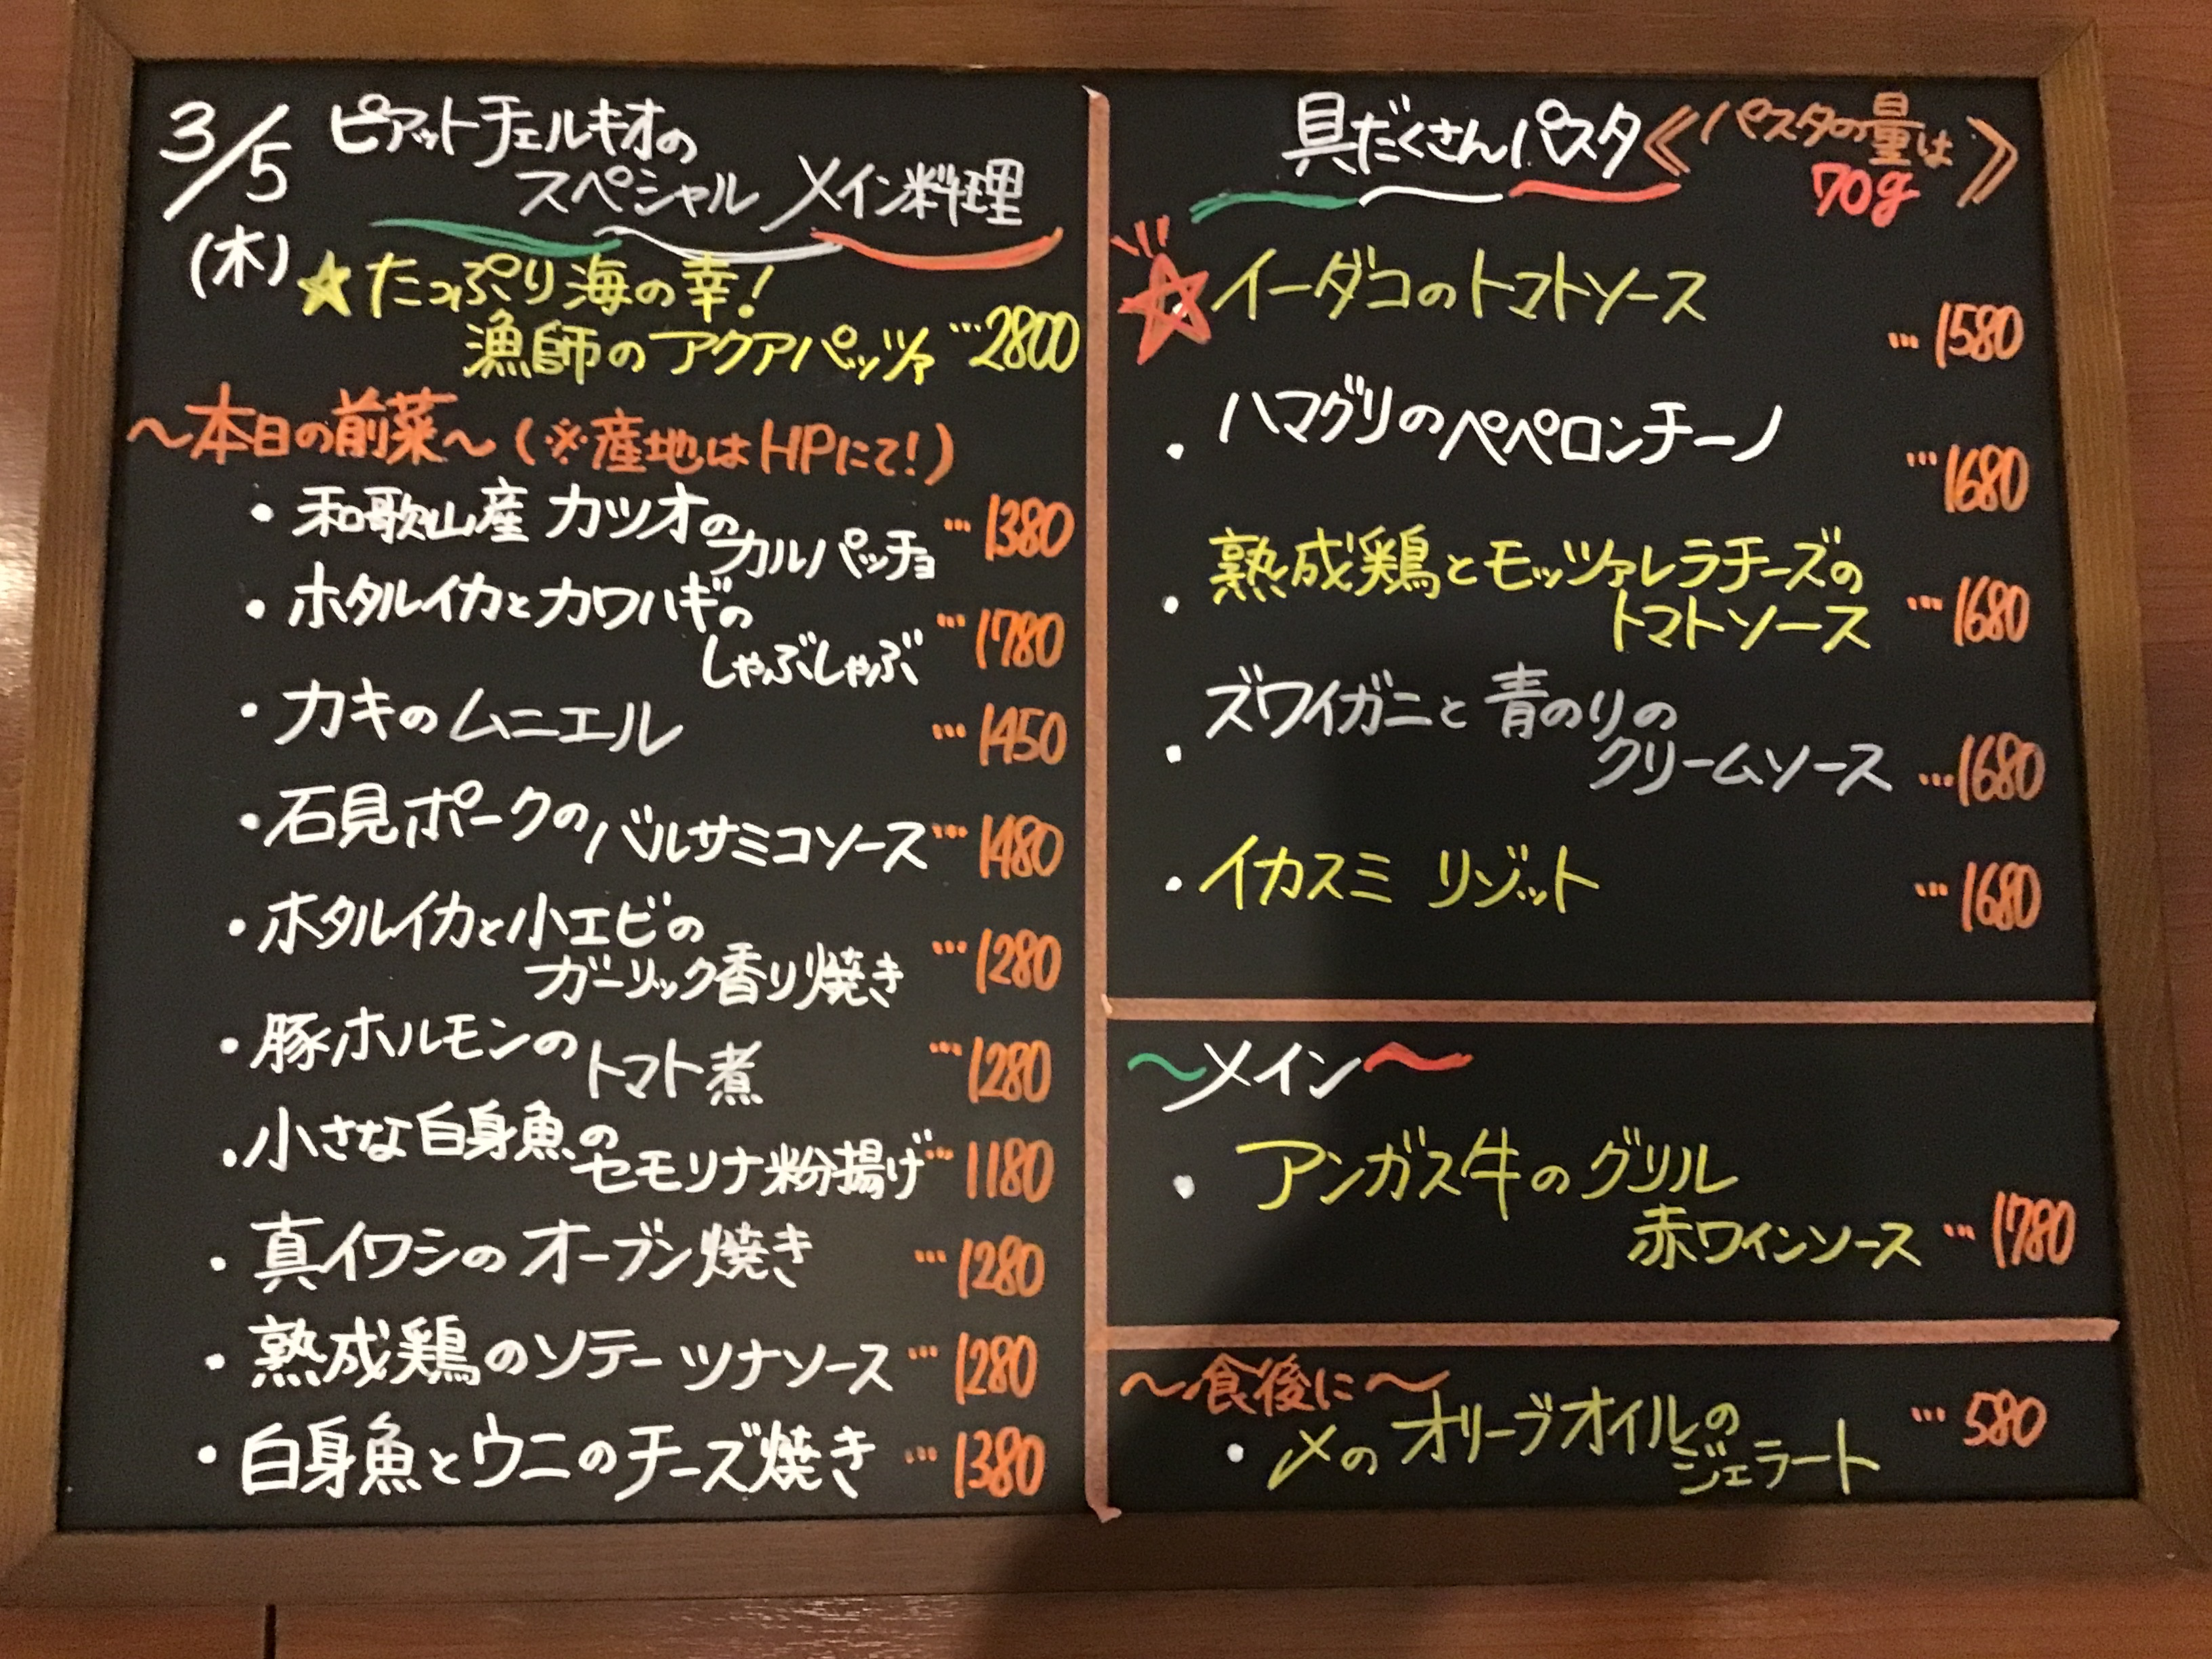 3/5
(木)
ピアットチェルキオの
スペシャル メイン料理
★たっぷり海の幸!
漁師のアクアパッツァ…2800
～本日の前菜～(※産地はHPにて!)
・和歌山産 カツオの
カルパッチョ …1380
・ホタルイカとカワハギの
しゃぶしゃぶ …1780
・カキのムニエル …1450
・石見ポークのバルサミコソース…1480
・ホタルイカと小エビの
ガーリック香り焼き …1280
・豚ホルモンのトマト煮 …1280
・小さな白身魚の
セモリナ粉揚げ…1180
・真イワシのオーブン焼き …1280
・熟成鶏のソテー ツナソース …1280
・白身魚とウニのチーズ焼き …1380
具だくさんパスタ《パスタの量は
70g》
☆イーダコのトマトソース
…1580
・ハマグリのペペロンチーノ
…1680
・熟成鶏とモッツァレラチーズの
トマトソース …1680
・ズワイガニと青のりの
クリームソース …1680
・イカスミ リゾット …1680
～メイン～
・アンガス牛のグリル
赤ワインソース …1780
～食後に～
・〆のオリーブオイルの
ジェラート …580